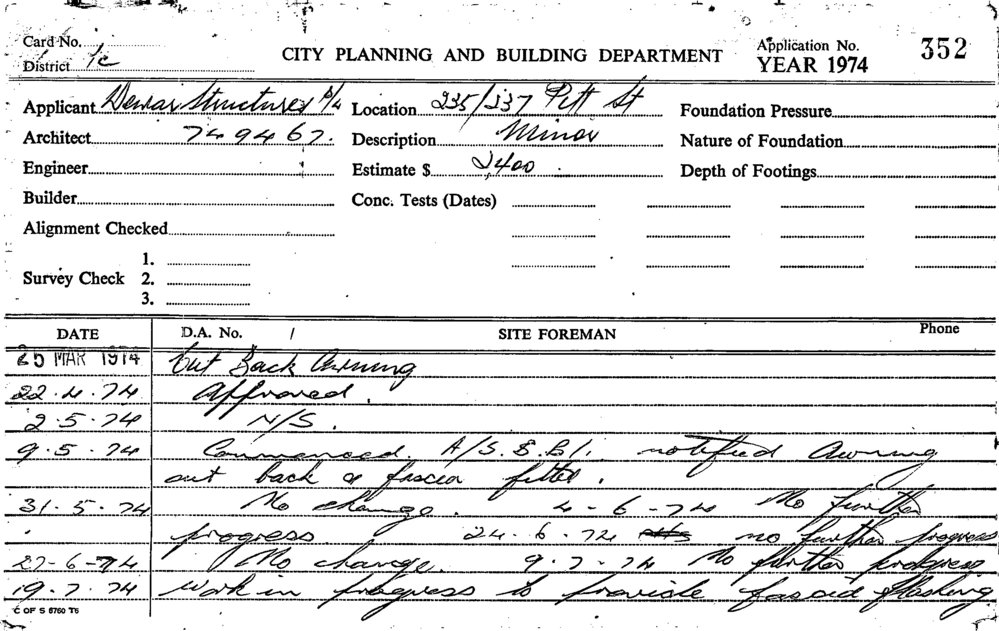 Card No.
District 1c
CITY PLANNING AND BUILDING DEPARTMENT
Application No. 352
YEAR 1974
Applicant Dewar Structures P/L Location 235/237 Pitt St Foundation Pressure
Architect 749467. Description Minor Nature of Foundation
Engineer Estimate $ 2400 Depth of Footings
Builder Conc. Tests (Dates)
Alignment Checked
1.
Survey Check 2.
3.
DATE D.A. No. / SITE FOREMAN Phone
25 MAR 1974 Cut Back Awning
22.4.74 Approved.
2.5.74 N/S.
9.5.74 Commenced. A/S.B.B.I. notified Awning
cut back & fascia fitted.
31.5.74 No change. 4-6-74 No further
progress. 24.6.74 no further progress
27-6-74 No change. 9.7.74 No further progress
19.7.74 Work in progress to provide fascia flashing
C OF S 5760 T6